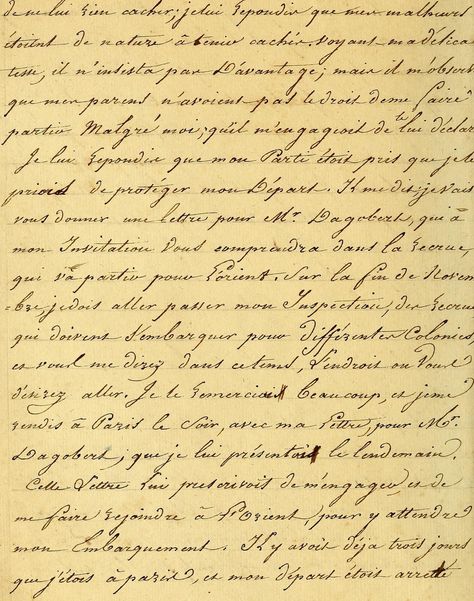 de ne lui rien cacher; je lui repondis que mes malheurs
étoient de nature à tenir cachés. voyant ma délica
tesse, il n'insista pas D'avantage; mais il m'observ
que mes parens n'avoient pas le droit de me faire
partir Malgré moi; qu'il m'engageoit de lui déclar
Je lui repondis que mon Parti étoit pris que je le
priois de protéger mon Départ. Il me dit; je vais
vous donner une lettre pour Mr. Dagobert, qui à
mon Invitation Vous comprendra dans la recrue,
qui va partir pour L'orient. Sur la fin de Novem
=bre, je dois aller passer mon Inspection, des recrues
qui doivent s'embarquer pour différentes Colonies,
et vous me direz dans ce tems, L'endroit ou Vous
désirez aller. Je le remerciai beaucoup, et je me
rendis à Paris le soir, avec ma Lettre, pour Mr.
Dagobert; que je lui présentois le lendemain.
Cette Lettre lui prescrivoit de m'engager, et de
me faire rejoindre à L'orient, pour y attendre
mon Embarquement. Il y avoit déja trois jours
que j'étois à paris, et mon départ étoit arreté